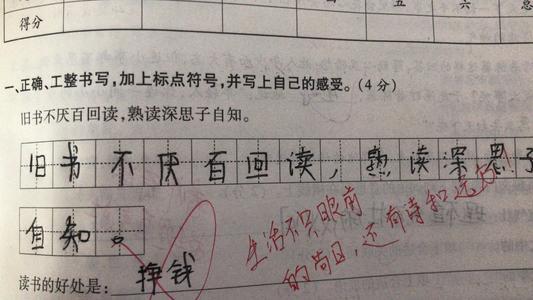 五 六 总
得分
一、正确、工整书写,加上标点符号,并写上自己的感受。(4分)
旧书不厌百回读,熟读深思子自知。
旧书不厌百回读,熟读深思子
自知。
生活不只眼前
的苟且,还有诗和远方!
读书的好处是: 挣钱